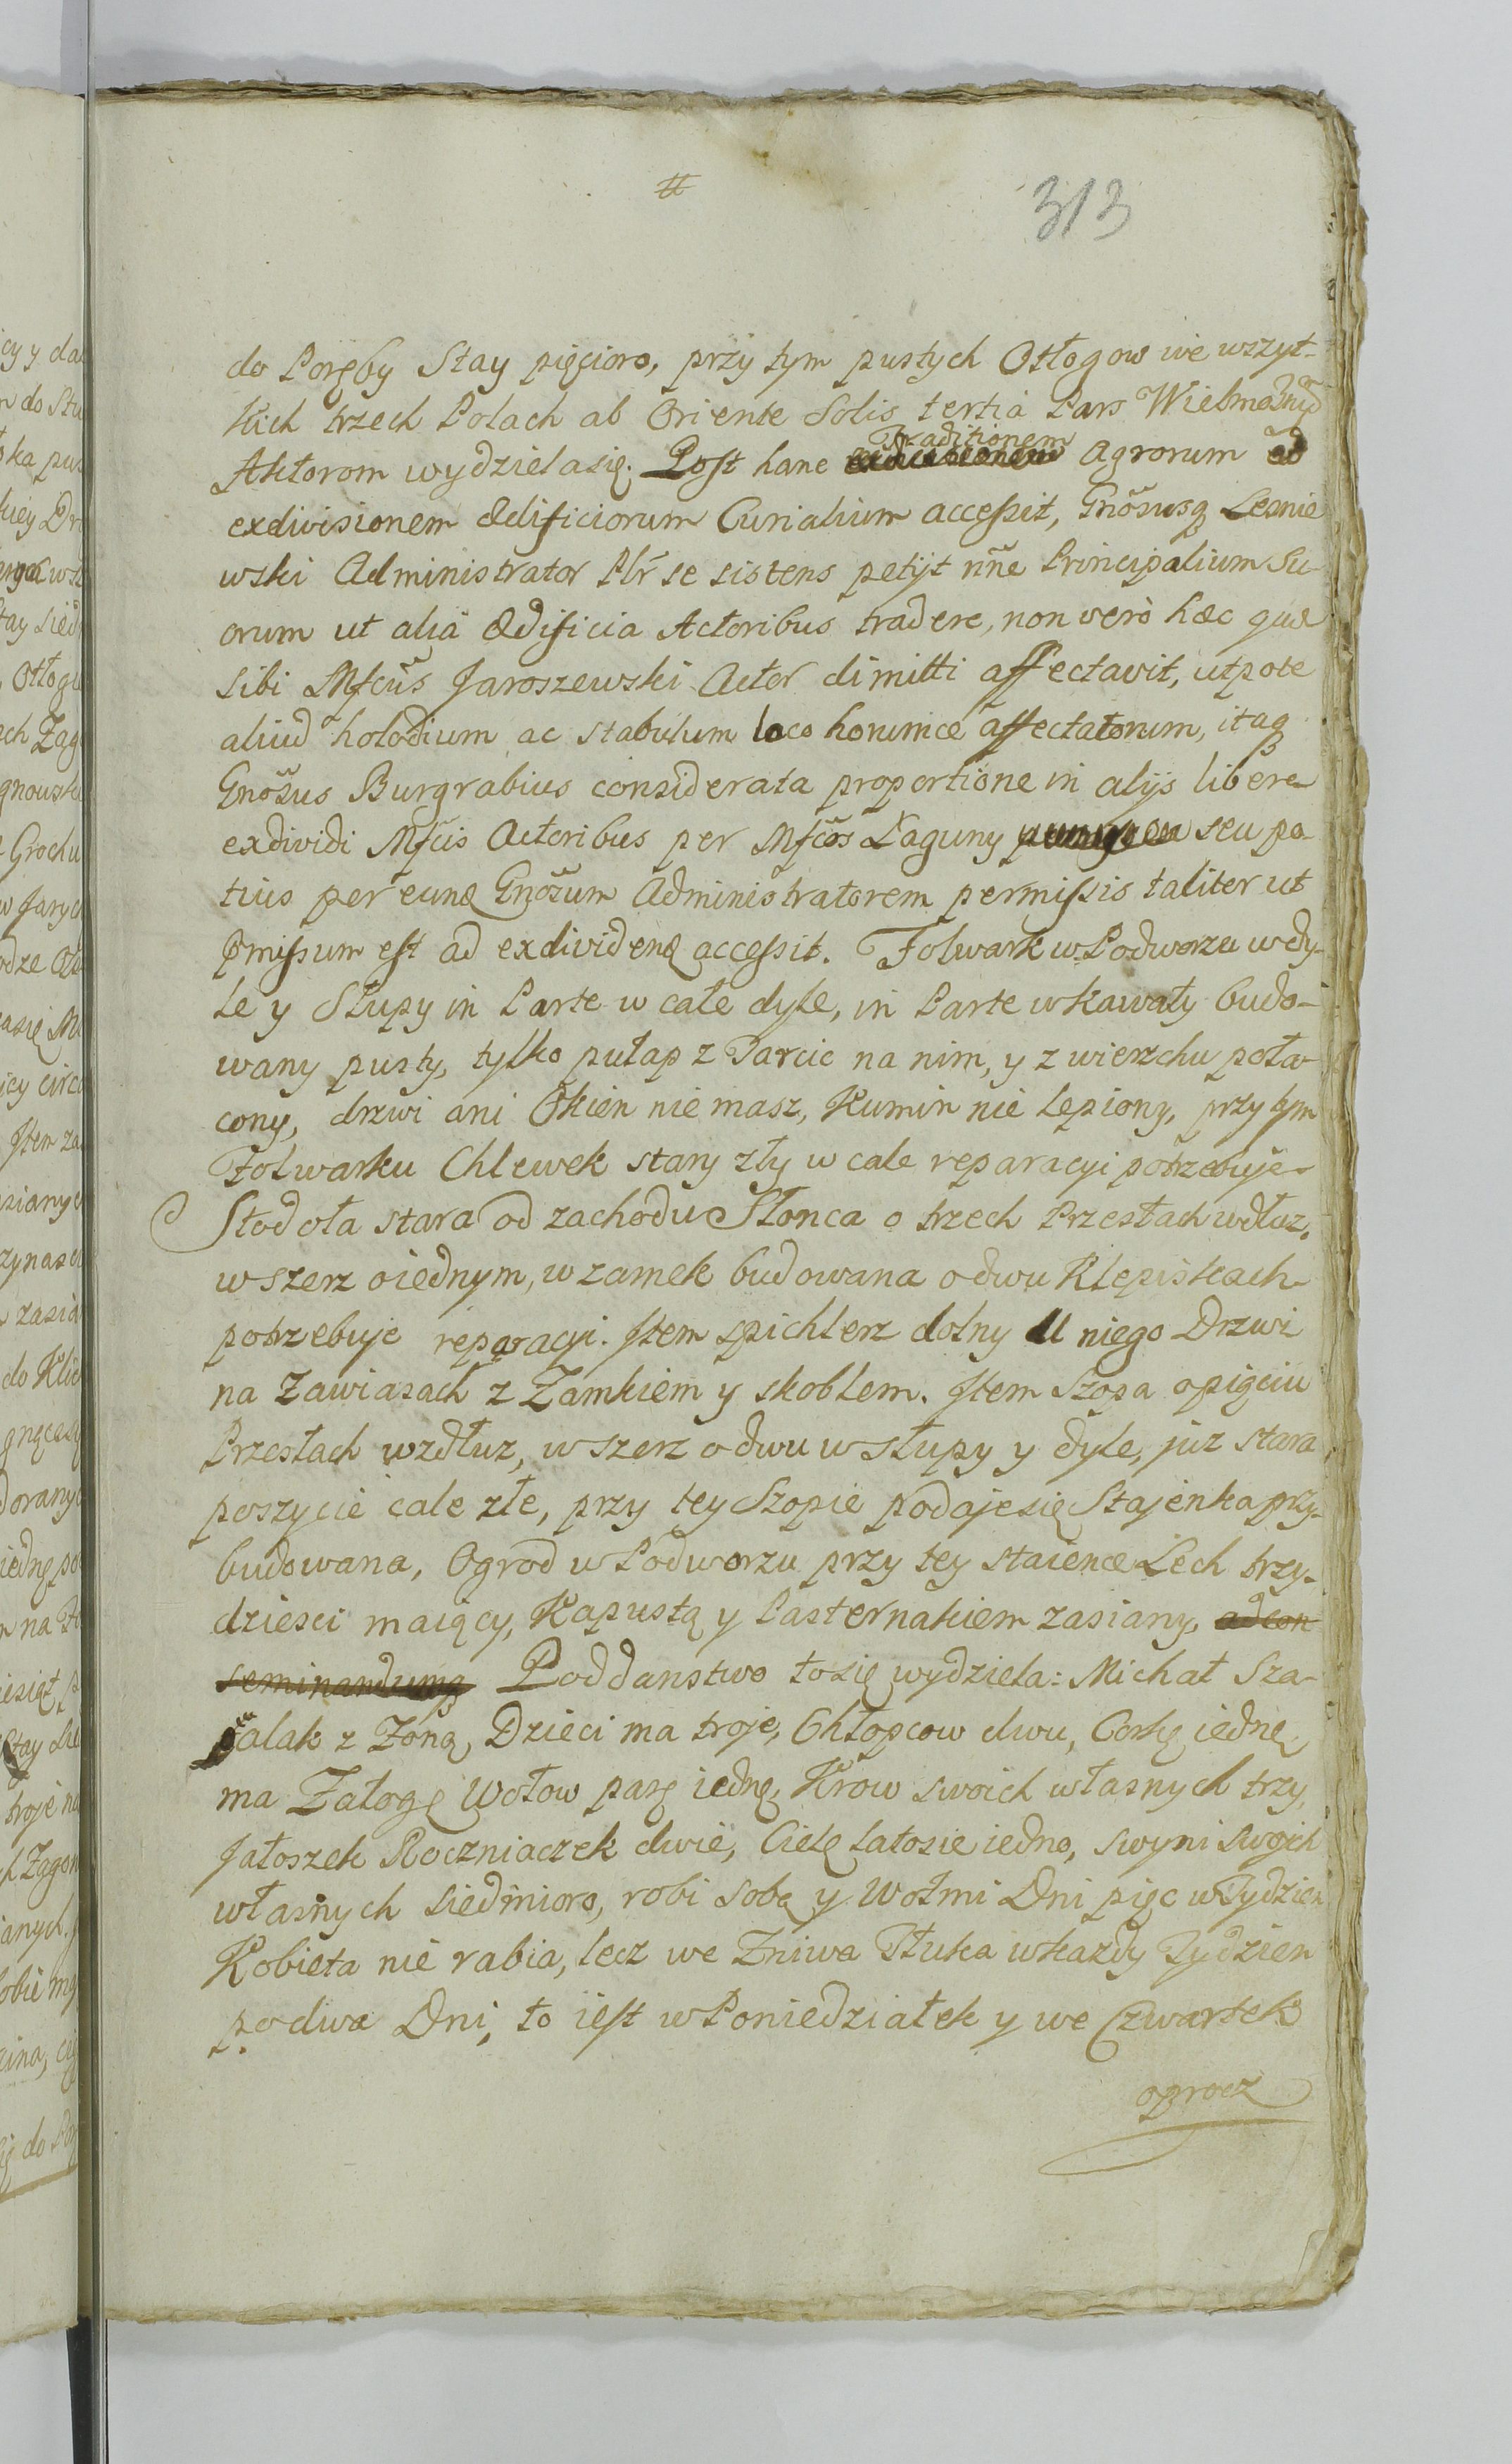 313
do Poręby Stay pięcioro, przy tym pustych Otłogow we wszyt-
kich trzech Polach ab Oriente Solis tertia Pars Wielmożnych
Aktorom wydziela się. Post hanc Traditionem Agrorum ad
exdivisionem ædificiorum Curialium accessit, Gnõsusq Lesnie
wski Administrator Plr se sistens petijt nñe Principalium su-
orum ut alia ædificia Actoribus tradere, non verò hæc quæ
sibi Mfcus Jaroszewski Actor dimitti affectavit, utpote
aliud holodium ac stabulum loco horumce affectatorum, itaq
Gnõsus Burgrabius considerata proportione in alijs libere
exdividi Mfcis Actoribus per Mfcos Łaguny seu po-
tius per eunq Gnõsum Administratorem permissis taliter ut
pmissum est ad exdividenq accessit. Folwark w Podworzu w dy-
le y Słupy in Parte w całe dyle, in Parte w kawały budo-
wany pusty, tylko pułap z Tarcic na nim, y z wierzchu poła-
cony, drzwi ani Okien nie masz, Kumin nie lepiony, przy tym
Folwarku Chlewek stary zły w cale reparacyi potrzebuje
Stodoła stara od zachodu Słonca o trzech Przesłach wdłuz,
w szerz o iednym, w zamek budowana o dwu Klepiskach
potrzebuje reparacyi. Item spichlerz dolny u niego Drzwi
na Zawiasach z Zamkiem y skoblem. Item Szopa o pięciu
Przesłach wzdłuz, w szerz o dwu w słupy y dyle, już stara
poszycie cale złe, przy tey Szopie podaje się Stajenka przy-
budowana, Ogrod w Podworzu przy tey staience Lech trzy-
dziesci maiący, Kapustą y Pasternakiem zasiany, ad con
seminandumq Poddanstwo to się wydziela: Michał Sza-
falak z Zoną, Dzieci ma troje, Chłopcow dwu, Corkę iednę
ma Załogę Wołow parę iednę, Krow swoich własnych trzy,
Jałoszek Roczniaczek dwie, Cielę latosie iedno, swyni swoich
własnych siedmioro, robi sobą y Wołmi Dni pięc w Tydzien
Kobieta nie rabia, lecz we Zniwa Tłuka w kazdy Tydzien
po dwa Dni, to iest w Poniedziałek y we Czwartek
oprocz